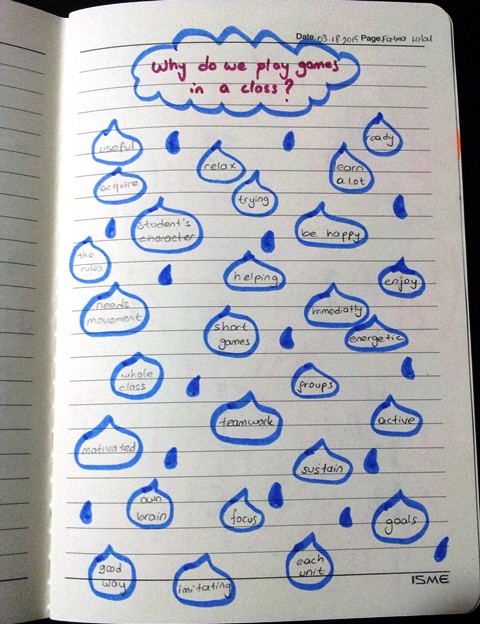 Date 03.18.2015 Page Fatma Hilal
Why do we play games
in a class?
useful
ready
relax
learn
a lot
acquire
trying
student's
character
be happy
the
rules
helping
enjoy
needs
movement
immediatly
short
games
energetic
whole
class
groups
teamwork
active
motivated
sustain
own
brain
focus
goals
good
way
imitating
each
unit
ISME